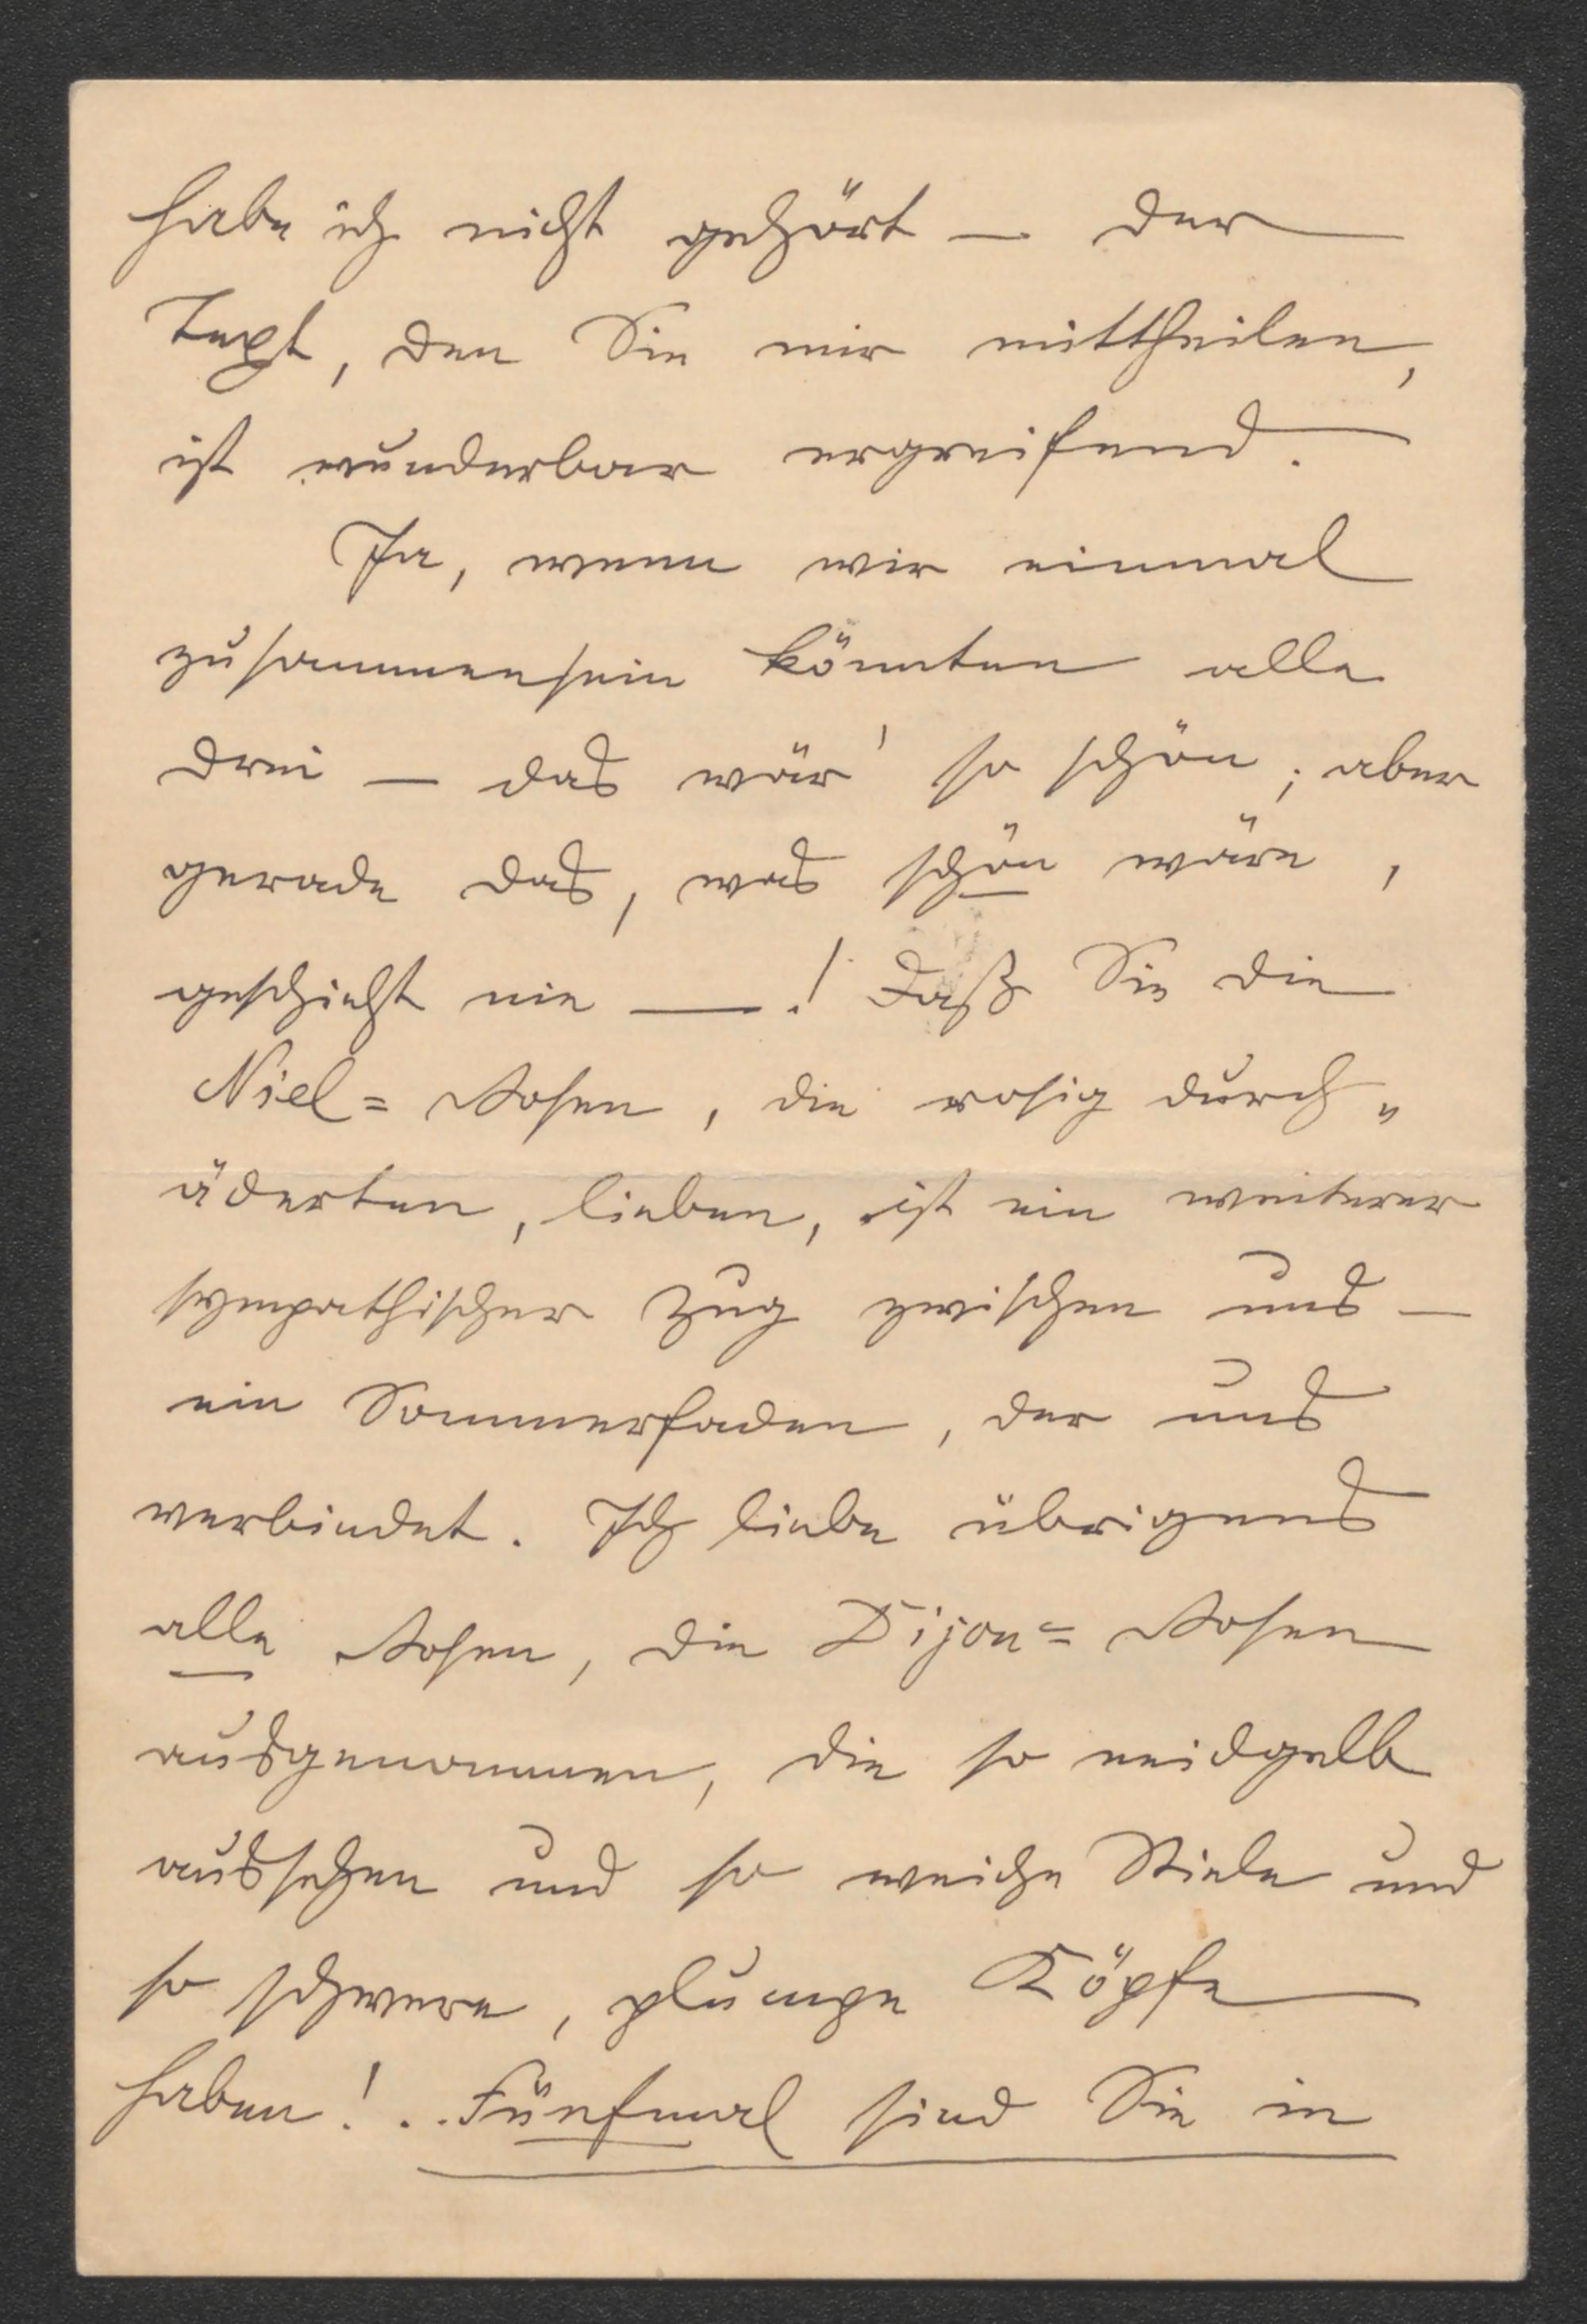 habe ich nicht gehört — der
Text, den Sie mir mittheilen,
ist wunderbar ergreifend.
Ja, wenn wir einmal
zusammensein könnten alle
drei — das wär' so schön; aber
gerade das, was schön wäre,
geschieht nie —! Daß Sie die
Niel= Rosen, die rosig durch„
äderten, lieben, ist ein weiterer
sympathischer Zug zwischen uns —
ein Sommerfaden, der uns
verbindet. Ich liebe übrigens
alle Rosen, die Dijon= Rosen
ausgenommen, die so neidgelb
aussehen und so weiche Stiele und
so schwere, plumpe Köpfe
haben! .. Fünfmal sind Sie in